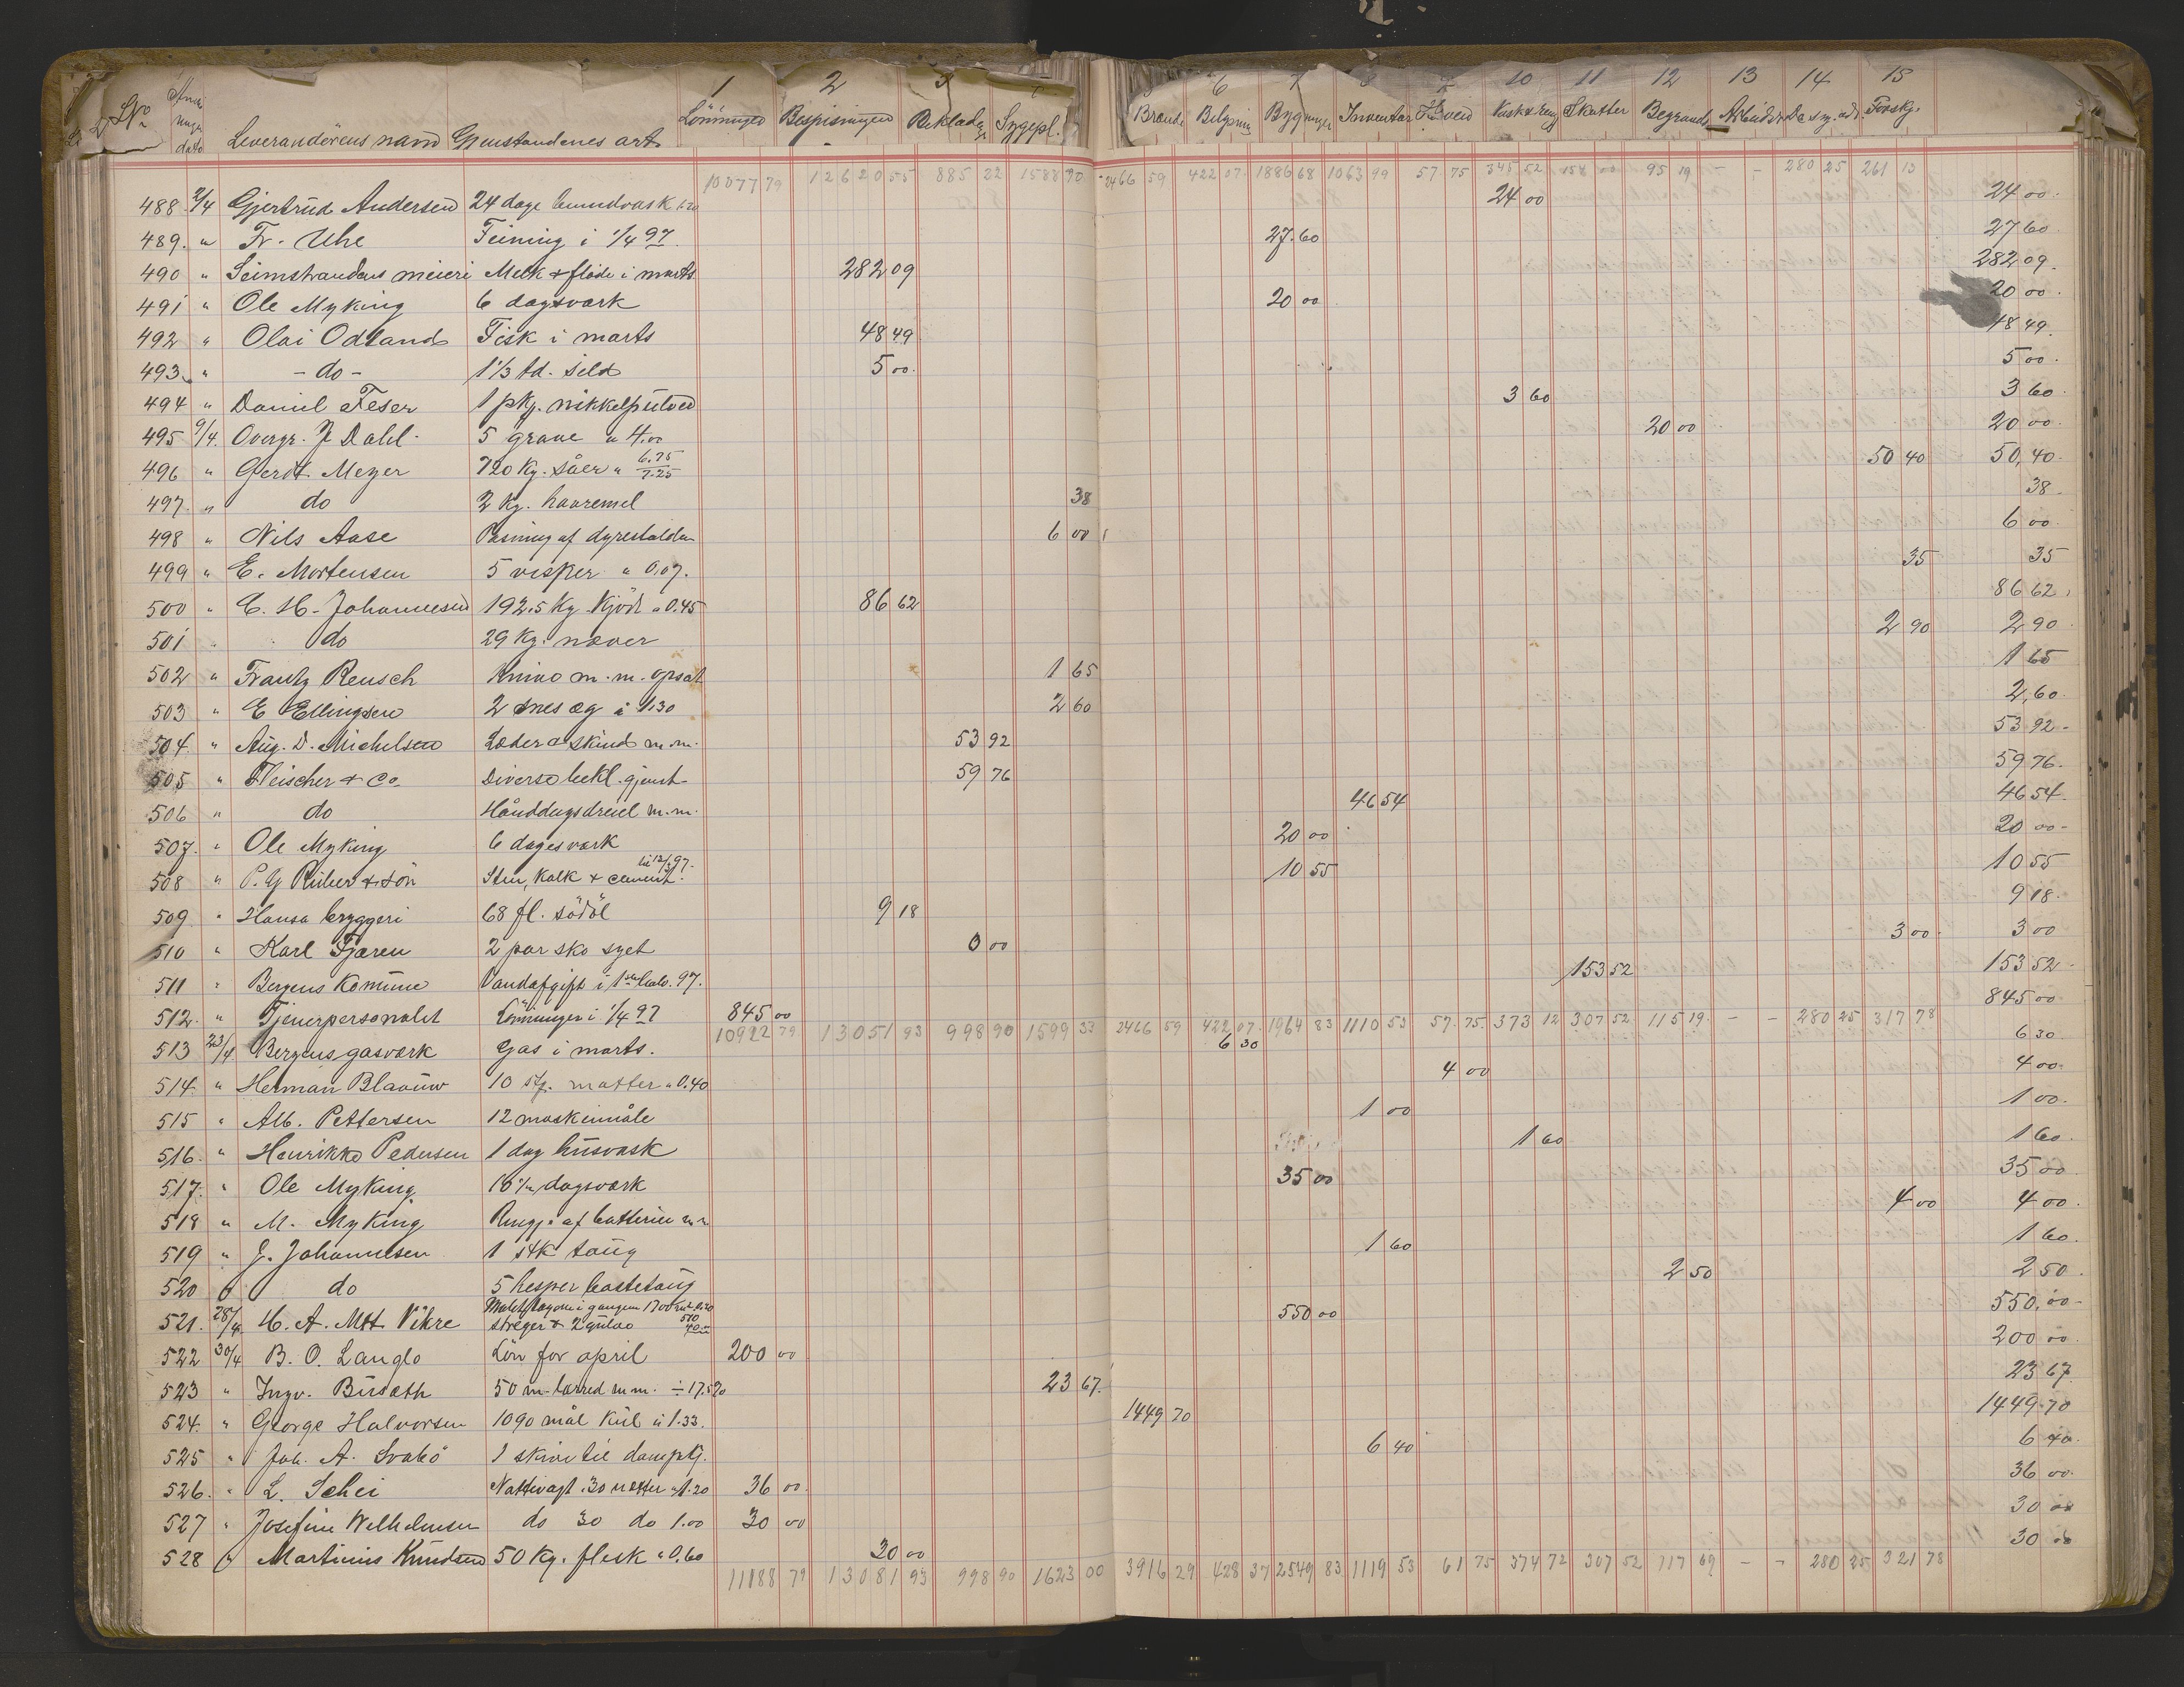 1 2 3 6 7 8 9 10 11 12 13 14 15
No Leverandörens navn Gjenstandenes art Lönninger Bespisningen Beklædn Sygepl. Brænde Belysning Bygninger Inventar Skatter Begravels Arbeids Forskj.
10077 79 12620 55 885 22 1588 70 2466 59 422 07 1886 68 1063 99 57 75 345 52 154 00 95 19 - - 280 25 261 13
488 2/4 Gjertrud Andersen 24 dage 24 00 24 00
489. " Fr. Uhe Feining i 1/4 97 27.60 27 60
490 " meieri Melk & fløde i marts 282 09 282 09
491 " Ole Myking 6 dagsværk 20 00 20 00
492 " Olai Odland Fisk i marts 48 49 48 49
493. " - do - 1 1/3 td. sild 5 00 5 00
494 " Daniel 1 pkg. nikkelpulver 3 60 3 60
495 9/4. J Dahl 5 grave a 4.00 20 00 20 00
496 " Gerdt Meyer 720 kg. såer a 6.75 7.25 50 40 50,40
497. " do 2 kg. havremel 38 38
498 " Nils Aase Pasning af 6 00 6 00
499 " E. Mortensen 5 visper a 0.07. 35 35
500 " C. H. Johannesen 192.5 kg. kjöd a 0.45 86 62 86 62
501 do 29 kg. næver 2 90 2 90
502 " Frantz Reusch m. m. opsat 1 65 1 65
503 " E Ellingsen 2 snes æg a 1.30 2 60 2,60
504. " Aug. D. Michelsen Læder & skind m.m. 53 92 53 92
505 " Fleischer & Co. Diverse bekl. gjenst 59 76 59 76
506 " do Hånddugsdreiel m.m. 46 54 46 54
507. " Ole Myking 6 dagesværk 20 00 20 00
508 " P. G Rieber & Sön Sten, kalk & cement 10 55 10 55
509 " Hansa bryggeri 68 fl. södöl 9 18 9 18
510 " Karl Fjæren 2 par sko syet 0 00 3 00 3 00
511 " Bergens Komune Vandafgift i 1ste halv. 97. 153 52 153 52
512. " Tjenerpersonalet Lönninger i 1/4 97 845 00 845 00
10922 79 13051 93 998 90 1599 33 2466 59 422 07 1964 83 1110 53 57 75 373 12 307 52 115 19 - - 280 25 317 78
513 23/4 Bergens gasværk Gas i marts. 6 30 6 30
514. " Herman Blaauw 10 matter a 0.40 4 00 4 00
515 " Alb. Pettersen 12 1 00 1 00
516. " Henrikke Pedersen 1 dag husvask 1 60 1 60
517. " Ole Myking dagsværk 35 00 35 00
518 " M. Myking af batterier 4 00 4 00
519 " J. Johannesen 1 stk taug 1 60 1 60
520 do 5 hesper 2 50 2 50
521. 28/4 H. A. Vikre i gangene 550 00 550,00
522 30/4 B. O. Langlo Lön for april 200 00 200 00
523 " Ingv. 50 m. m.m. 23 67 23 67
524. " George Halvorsen 1090 mål kul a 1.33. 1449 70 1449.70
525 " Joh. A. 1 skive til dampkj. 6 40 6 40
526. " L. Schei Nattevagt 30 nætter a 1.20 36 00 36 00
527 " Josefine Wilhelmsen do 30 do 1.00 30 00 30 00
528 " Martinius Knudsen 50 kg. flesk a 0.60 30 00 30 00
11188 79 13081 93 998 90 1623 00 3916 29 428 37 2549 83 1119 53 61 75 374 72 307 52 117 69 - - 280 25 321 78